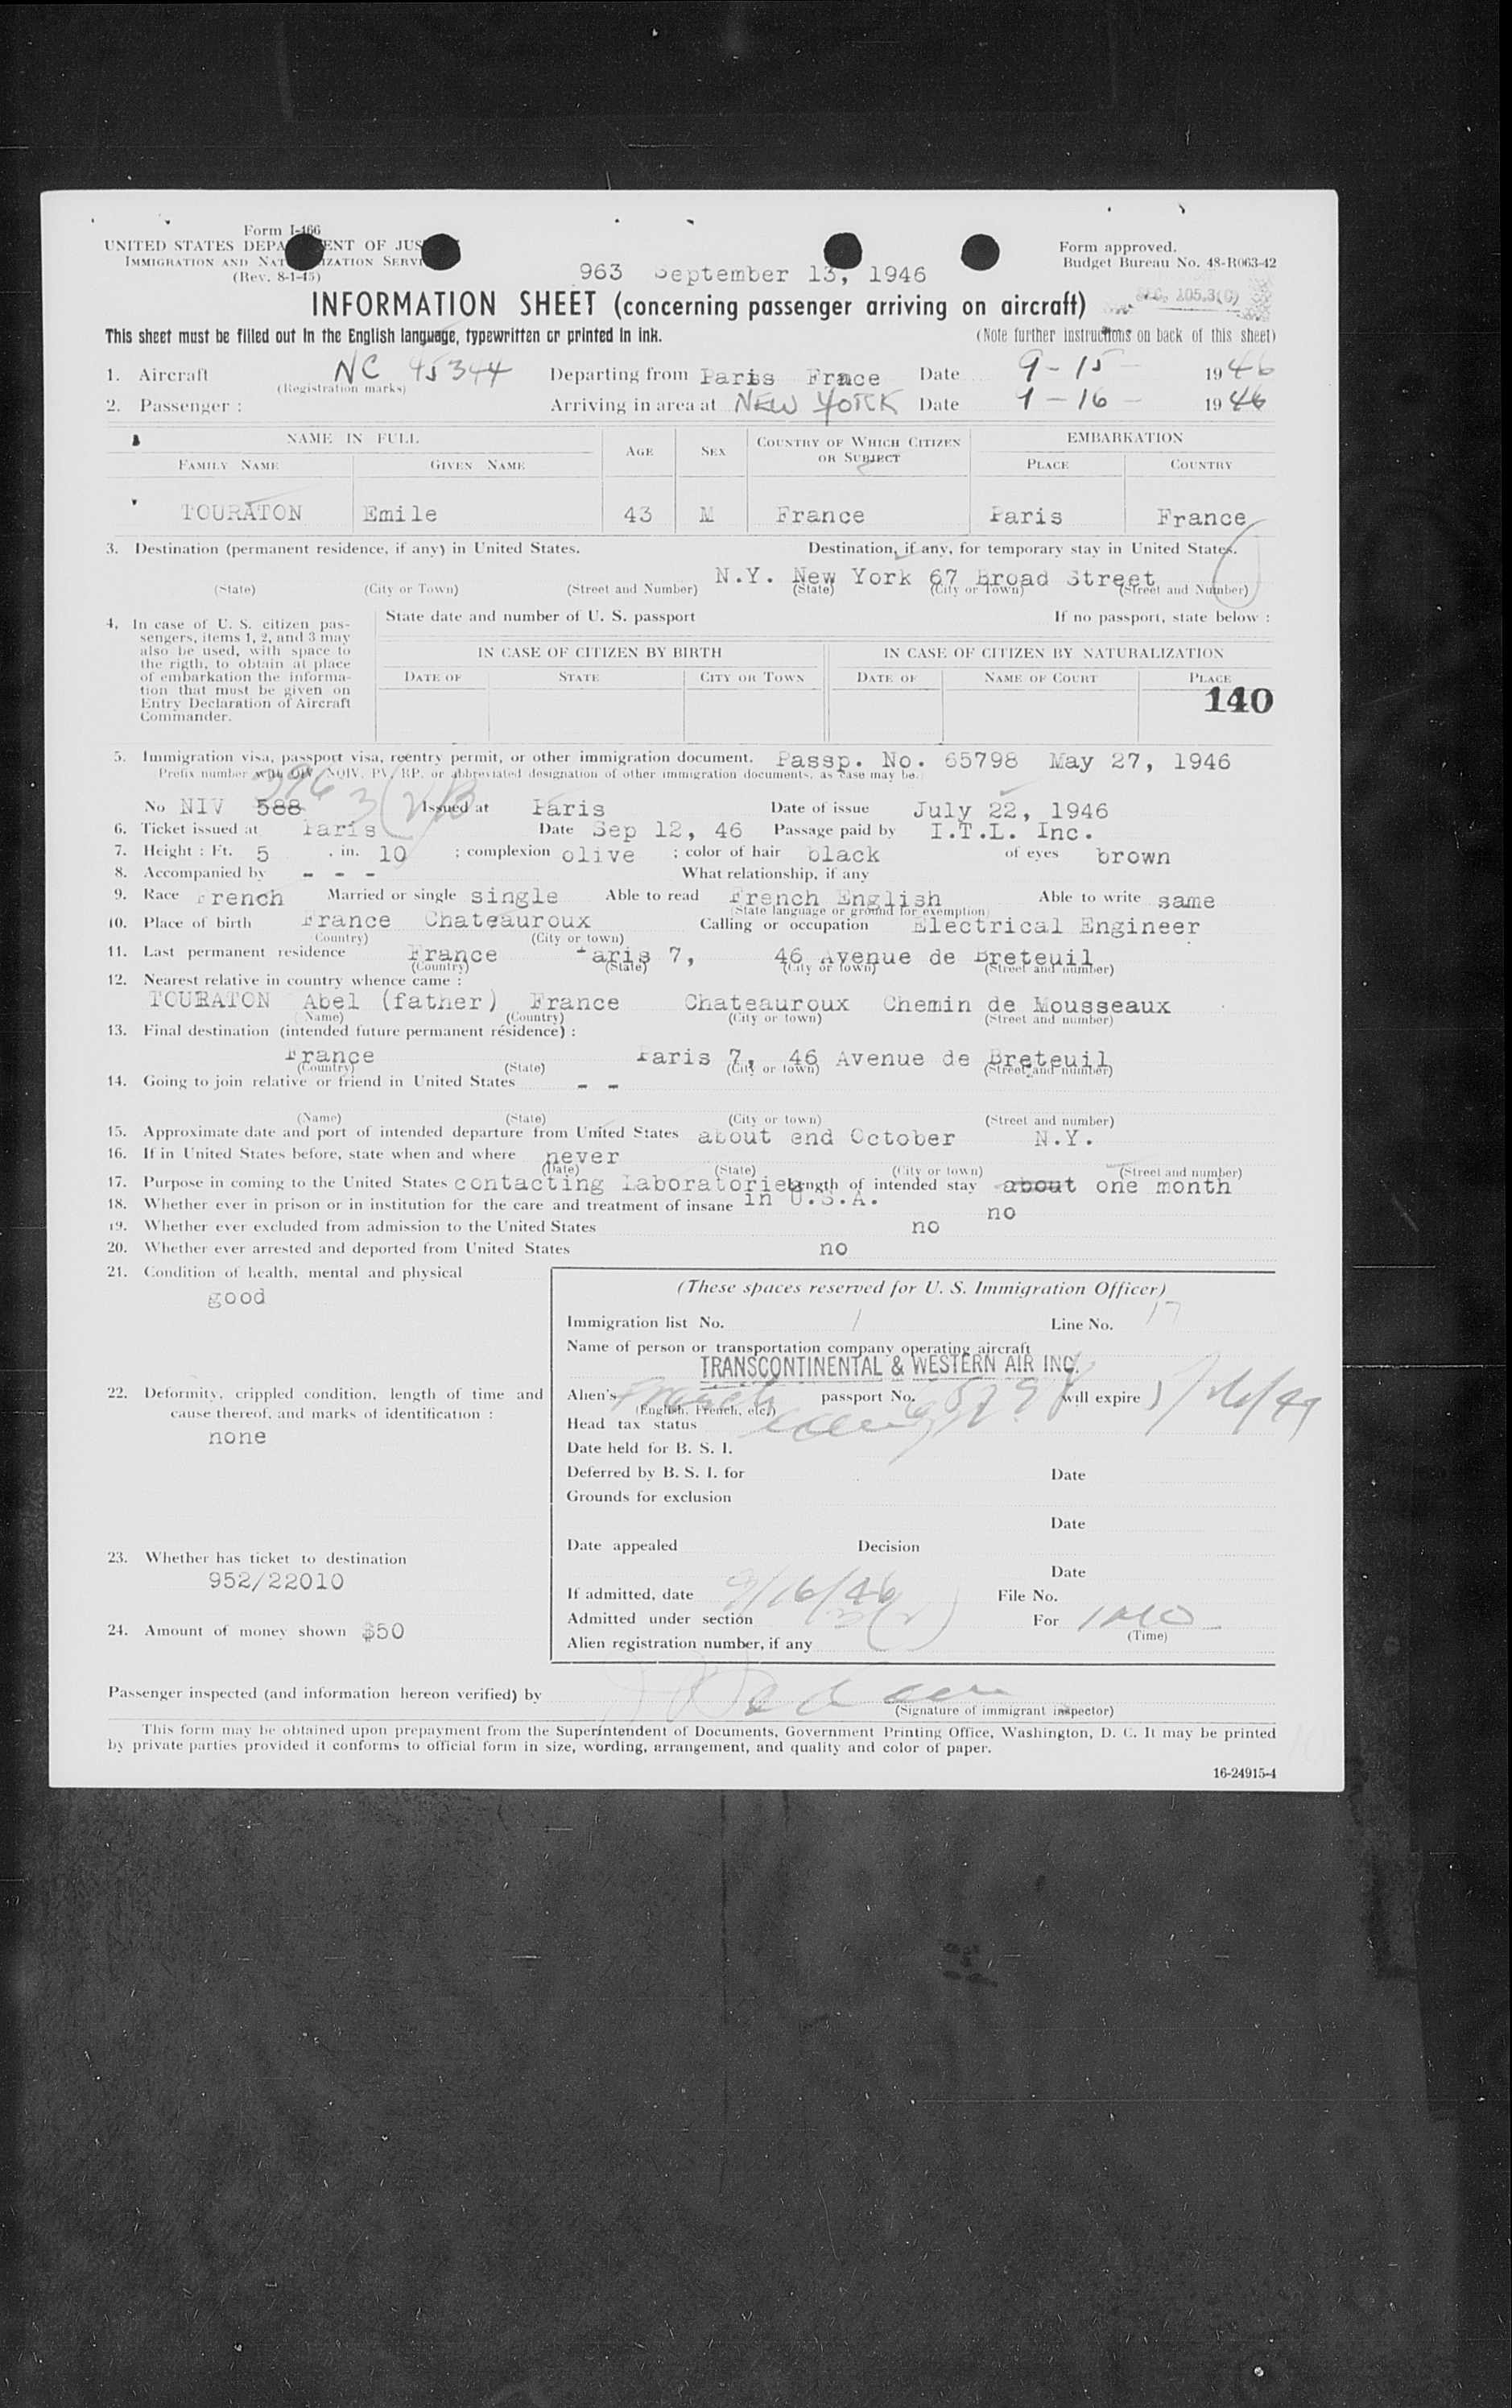 Form I-466
UNITED STATES DEPA ENT OF JUS
IMMIGRATION AND NAT IZATION SERVI
(Rev. 8-1-45)
Form approved.
Budget Bureau No. 48-R063-42
963 September 13, 1946
SEC. 105.3(C)
INFORMATION SHEET (concerning passenger arriving on aircraft)
This sheet must be filled out in the English language, typewritten or printed in ink. (Note further instructions on back of this sheet)
1. Aircraft NC 45344 Departing from Paris Frace Date 9-15- 1946
(Registration marks)
2. Passenger : Arriving in area at NEW YORK Date 9-16- 1946
NAME IN FULL AGE SEX COUNTRY OF WHICH CITIZEN OR SUBJECT EMBARKATION
FAMILY NAME GIVEN NAME PLACE COUNTRY
TOURATON Emile 43 M France Paris France
3. Destination (permanent residence, if any) in United States. Destination, if any, for temporary stay in United States.
N.Y. New York 67 Broad Street
(State) (City or Town) (Street and Number) (State) (City or Town) (Street and Number)
4. In case of U. S. citizen pas-
sengers, items 1, 2, and 3 may
also be used, with space to
the rigth, to obtain at place
of embarkation the informa-
tion that must be given on
Entry Declaration of Aircraft
Commander.
State date and number of U. S. passport If no passport, state below :
IN CASE OF CITIZEN BY BIRTH IN CASE OF CITIZEN BY NATURALIZATION
DATE OF STATE CITY OR TOWN DATE OF NAME OF COURT PLACE
140
5. Immigration visa, passport visa, reentry permit, or other immigration document. Passp. No. 65798 May 27, 1946
Prefix number with QIV, NQIV, PV, RP, or abbreviated designation of other immigration documents, as case may be.
296 3(2)B
No NIV 588 Issued at Paris Date of issue July 22, 1946
6. Ticket issued at Paris Date Sep 12, 46 Passage paid by I.T.L. Inc.
7. Height : Ft. 5 . in. 10 ; complexion olive ; color of hair black of eyes brown
8. Accompanied by - - - What relationship, if any
9. Race French Married or single single Able to read French English Able to write same
(State language or ground for exemption)
10. Place of birth France Chateauroux Calling or occupation Electrical Engineer
(Country) (City or town)
11. Last permanent residence France Paris 7, 46 Avenue de Breteuil
(Country) (State) (City or town) (Street and number)
12. Nearest relative in country whence came :
TOURATON Abel (father) France Chateauroux Chemin de Mousseaux
(Name) (Country) (City or town) (Street and number)
13. Final destination (intended future permanent résidence) :
France Paris 7, 46 Avenue de Breteuil
(Country) (State) (City or town) (Street and number)
14. Going to join relative or friend in United States - -
(Name) (State) (City or town) (Street and number)
15. Approximate date and port of intended departure from United States about end October N.Y.
16. If in United States before, state when and where never
(Date) (State) (City or town) (Street and number)
17. Purpose in coming to the United States contacting laboratories Length of intended stay about one month
in U.S.A.
18. Whether ever in prison or in institution for the care and treatment of insane no
19. Whether ever excluded from admission to the United States no
20. Whether ever arrested and deported from United States no
21. Condition of health, mental and physical
good
22. Deformity, crippled condition, length of time and
cause thereof, and marks of identification :
none
23. Whether has ticket to destination
952/22010
24. Amount of money shown $50
(These spaces reserved for U. S. Immigration Officer)
Immigration list No. 1 Line No. 17
Name of person or transportation company operating aircraft
TRANSCONTINENTAL & WESTERN AIR INC.
Alien's French passport No. 65798 will expire
(English, French, etc.)
Head tax status
Date held for B. S. I.
Deferred by B. S. I. for Date
Grounds for exclusion
Date
Date appealed Decision
Date
If admitted, date 9/16/46 File No.
Admitted under section 3(2) For 1 MO
(Time)
Alien registration number, if any
Passenger inspected (and information hereon verified) by
(Signature of immigrant inspector)
This form may be obtained upon prepayment from the Superintendent of Documents, Government Printing Office, Washington, D. C. It may be printed
by private parties provided it conforms to official form in size, wording, arrangement, and quality and color of paper.
16-24915-4